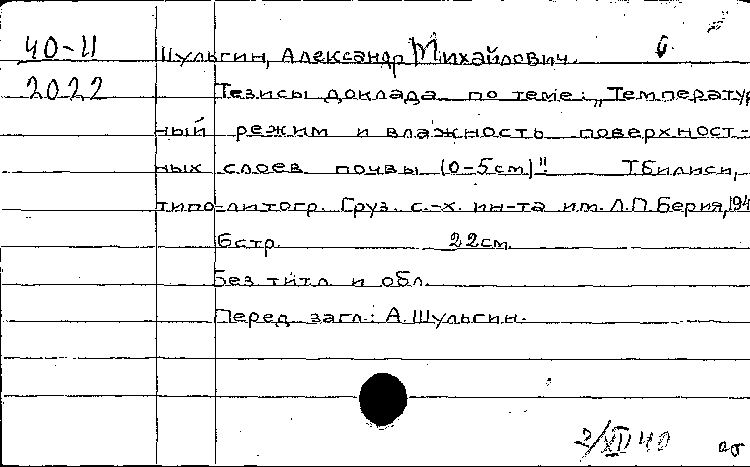 40-11 Шульгин, Александр Михайлович.
2022 Тезисы доклада по теме: „Температур
ный режим и влажность поверхност-
ных слоев почвы (0-5см)". Тбилиси,
типо-литогр. Груз. с.-х. ин-та им. Л.П. Берия, 194
6стр. 22см.
Без титл. и обл.
Перед загл.: А. Шульгин.
XII 40